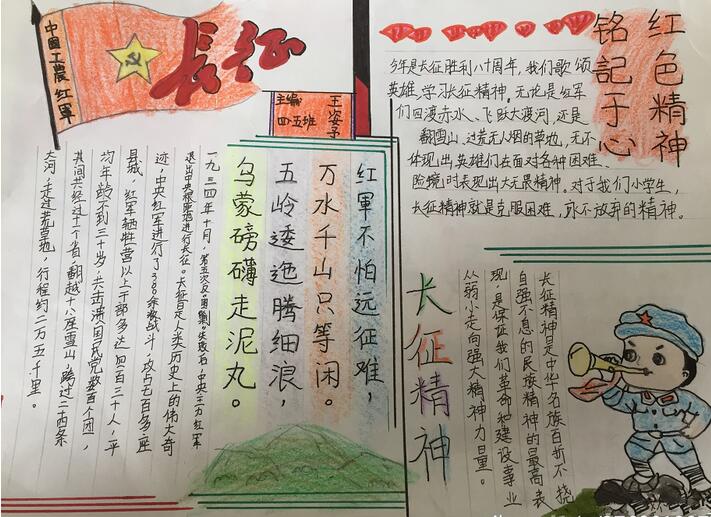 中国工農红軍
长征
主编
四.五班
王姿予
一九三四年十月,第五次反"围剿"失败后,中央主力红軍
退出中央根据地进行长征。长征是人类历史上的伟大奇
迹,中央红軍进行了380余次战斗,攻占七百多座
县城,红軍牺牲营以上干部多达四百三十人,平
均年龄不到三十岁,共击溃国民党数百个团,
其间共经过十一个省,翻越十八座雪山,跨过二十四条
大河,走过荒草地,行程约二万五千里。
红軍不怕远征难,
万水千山只等闲。
五岭逶迤腾细浪,
乌蒙磅礴走泥丸。
红色精神
铭記于心
今年是长征胜利八十周年,我们歌颂
英雄,学习长征精神。无论是红军
们四渡赤水、飞跃大渡河,还是
翻雪山、过荒无人烟的草地,无不
体现出英雄们在面对各种困难、
险境时表现出大无畏精神。对于我们小学生,
长征精神就是克服困难,永不放弃的精神。
长征精神
长征精神是中华十名族百折不挠
自强不息的民族精神的最高表
现,是保证我们革命和建设事业
从弱小走向强大精神力量。